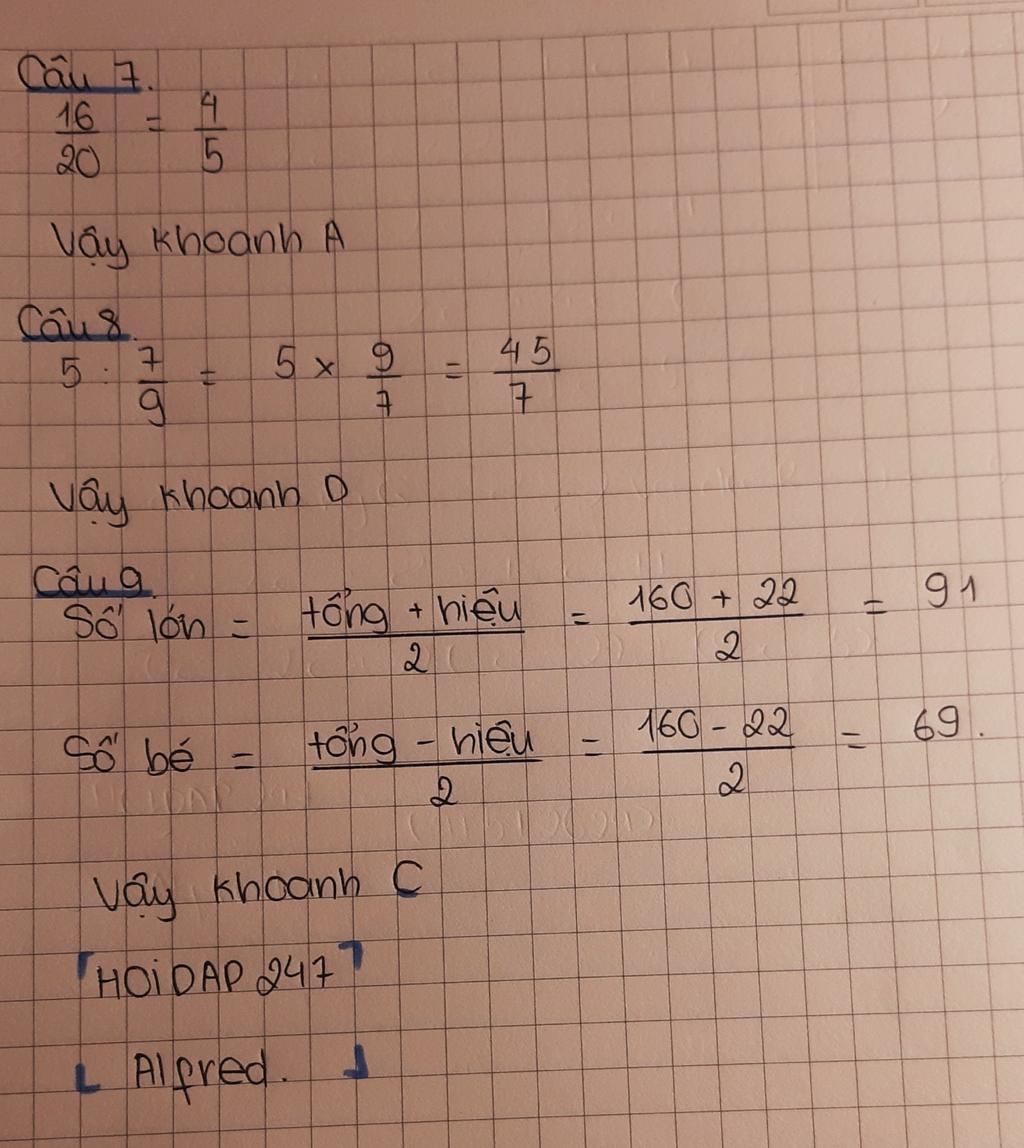 Câu 7.
16/20 = 4/5
Vậy khoanh A
Câu 8.
5 : 7/9 = 5 × 9/7 = 45/7
Vậy khoanh D
Câu 9.
Số lớn = tổng + hiệu/2 = 160 + 22/2 = 91
Số bé = tổng - hiệu/2 = 160 - 22/2 = 69.
Vậy khoanh C
「HOiDAP 247」
Alfred.